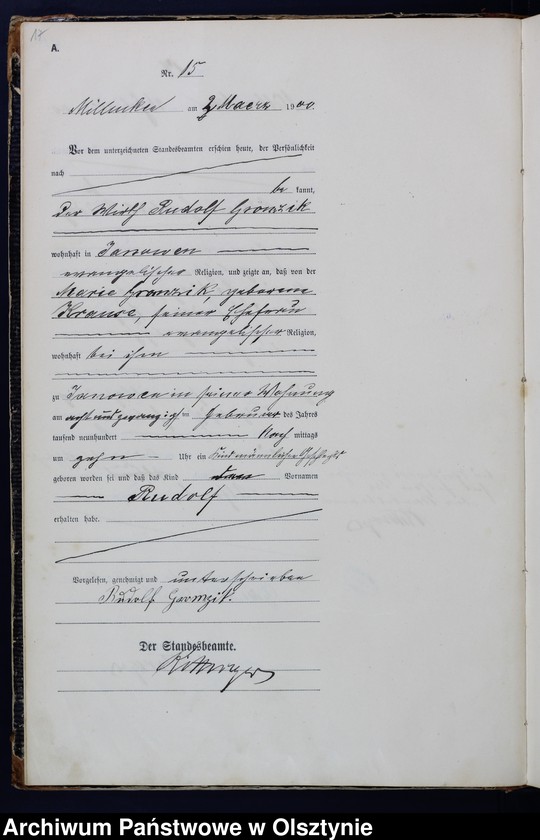 17
A.
Nr. 15
Millucken am 2 Maerz 1900.
Vor dem unterzeichneten Standesbeamten erschien heute, der Persönlichkeit
nach
be kannt,
der Wirth Rudolf Gronzik
wohnhaft in Janowen
evangelischer Religion, und zeigte an, daß von der
Marie Gronzik, geborenen
Krause, seiner Ehefrau
evangelischer Religion,
wohnhaft bei ihm
zu Janowen in seiner Wohnung
am acht und zwanzigsten Februar des Jahres
tausend neunhundert Nach mittags
um zehn Uhr ein Kind männlichen Geschlechts
geboren worden sei und daß das Kind Vornamen
Rudolf
erhalten habe.
Vorgelesen, genehmigt und unterschrieben
Rudolf
Der Standesbeamte.
Archiwum Państwowe w Olsztynie